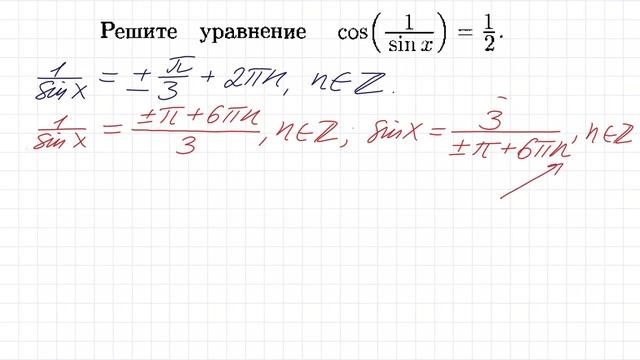 Решите уравнение cos(1/sin x) = 1/2.
1/sin x = ± π/3 + 2πn, n∈ℤ.
1/sin x = (±π+6πn)/3, n∈ℤ; sin x = 3/(±π+6πn), n∈ℤ